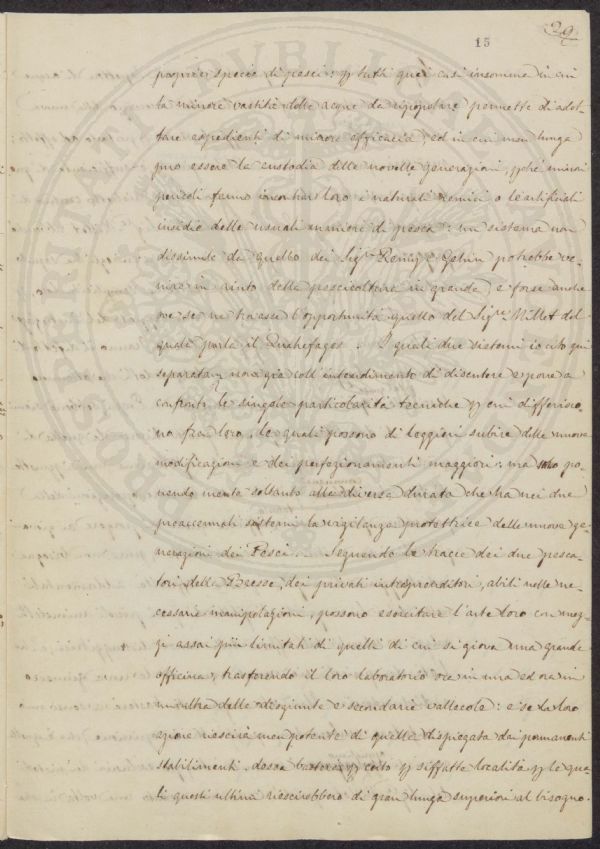 29
15
proprie specie di pesci: p tutti quei casi insomma in cui
la minore vastità delle acque da ripopolare permette di adot-
tare espedienti di minore efficacia, ed in cui men lunga
può essere la custodia delle novelle generazioni, pchè minori
pericoli fanno incontrar loro i naturali nemici o le artificiali
insidie delle usuali maniere di pesca: un sistema non
dissimile da quello dei Sigri Remy e Gehin potrebbe ve-
nire in aiuto della pescicoltura in grande, e forse anche
ove se ne traesse l'opportunità quello del Sigre Millet del
quale parla il Quatrefages. I quali due sistemi io cito qui
separatam non già coll'intendimento di discutere e porre a
confronti le singole particolarità tecniche p cui differisco-
no fra loro, le quali possono di leggieri subire delle nuove
modificazioni e dei perfezionamenti maggiori: ma solo po-
nendo mente soltanto alla diversa durata che ha nei due
preaccennati sistemi la vigilanza protettrice delle nuove ge-
nerazioni dei Pesci. Seguendo le tracce dei due pesca-
tori della Bresse, dei privati intraprenditori, abili nelle ne-
cessarie manipolazioni, possono esercitare l'arte loro con mez-
zi assai più limitati di quelli di cui si giova una grande
officina, trasferendo il loro laboratorio ora in una ed ora in
un'altra delle disgiunte e secondarie vallecole: e se la loro
azione riescirà men potente di quella dispiegata dai permanenti
stabilimenti, dessa basterà p certo p siffatte località p le qua-
li questi ultimi riescirebbero di gran lunga superiori al bisogno.